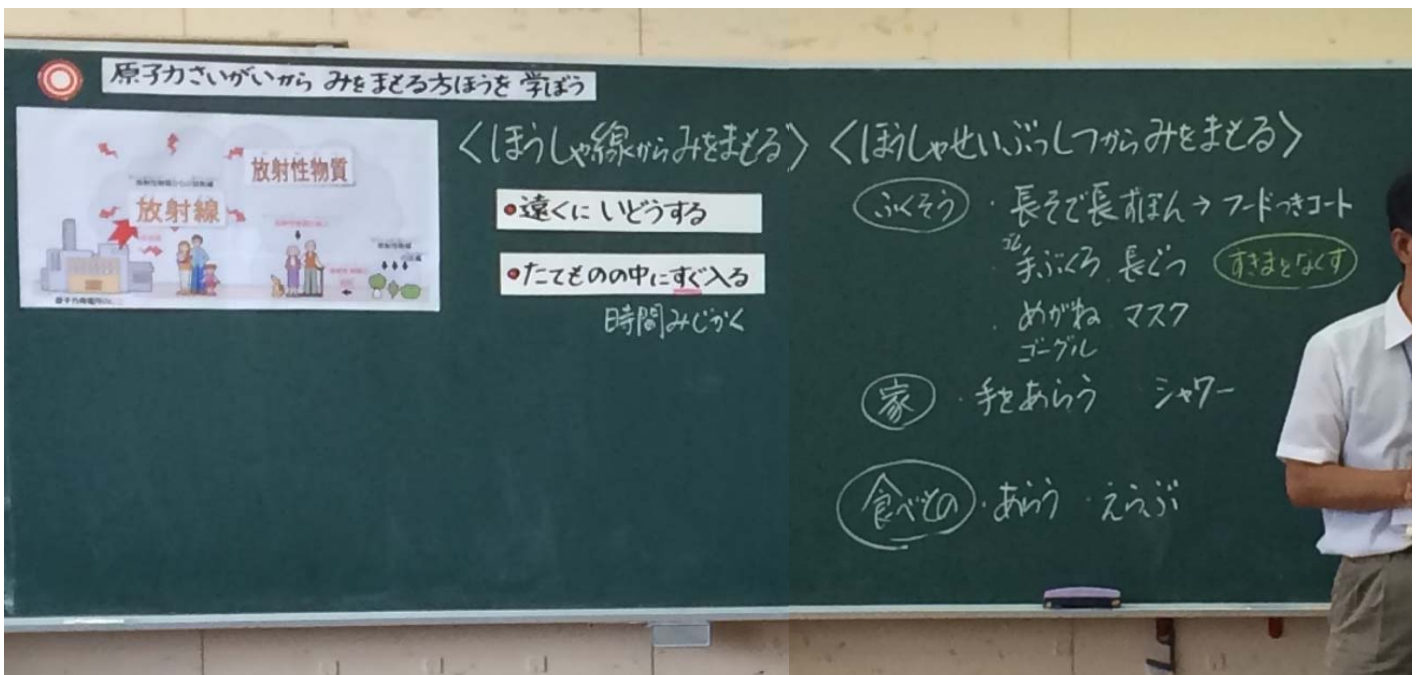 原子力さいがいから みをまもる方ほうを 学ぼう
放射性物質
放射線
〈ほうしゃ線からみをまもる〉
・遠くに いどうする
・たてものの中にすぐ入る
時間みじかく
〈ほうしゃせいぶっしつからみをまもる〉
ふくそう ・長そで長ずぼん→フードつきコート
ゴム
・手ぶくろ 長ぐつ すきまをなくす
・めがね マスク
ゴーグル
家 ・手をあらう シャワー
食べもの ・あらう ・えらぶ